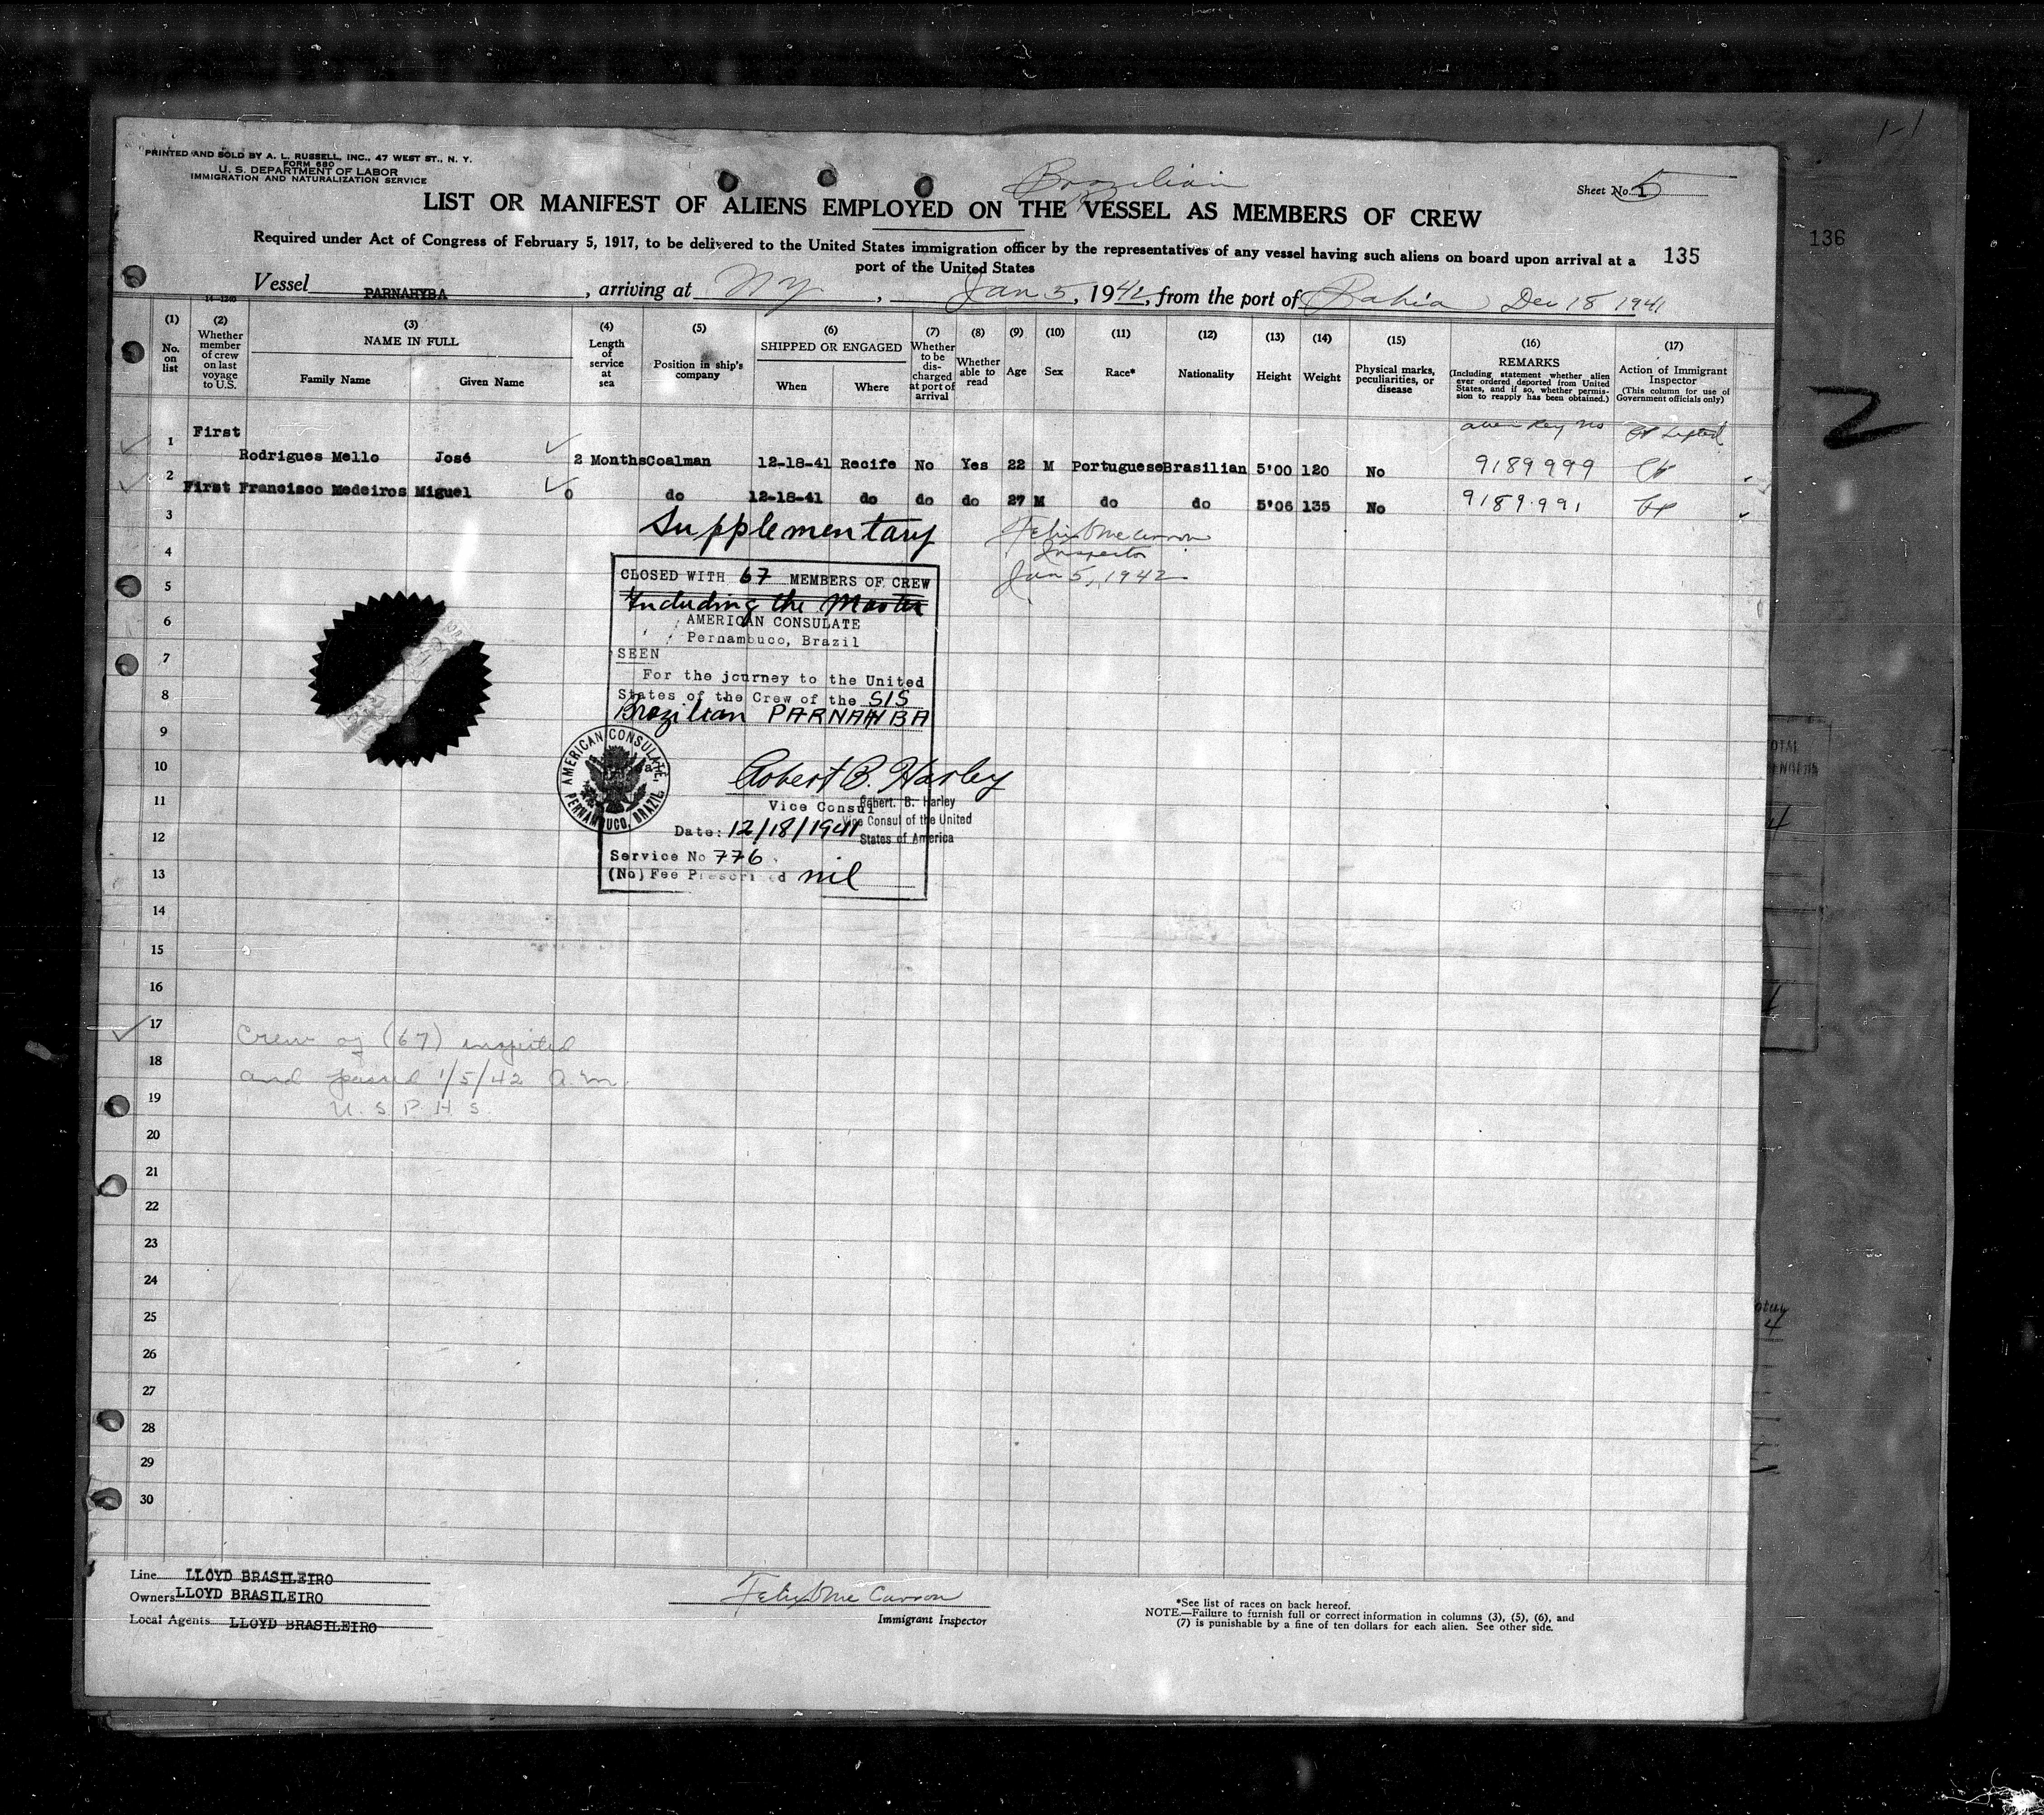 1-1
PRINTED AND SOLD BY A. L. RUSSELL, INC., 47 WEST ST., N. Y.
FORM 680
U. S. DEPARTMENT OF LABOR
IMMIGRATION AND NATURALIZATION SERVICE
Brazilian
Sheet No. 1 5
LIST OR MANIFEST OF ALIENS EMPLOYED ON THE VESSEL AS MEMBERS OF CREW
Required under Act of Congress of February 5, 1917, to be delivered to the United States immigration officer by the representatives of any vessel having such aliens on board upon arrival at a
port of the United States
135
136
Vessel PARNAHYBA, arriving at NY, Jan 5, 1942, from the port of Bahia Dec 18 1941
14-1240
(1) No. on list
(2) Whether member of crew on last voyage to U.S.
(3) NAME IN FULL
Family Name Given Name
(4) Length of service at sea
(5) Position in ship's company
(6) SHIPPED OR ENGAGED
When Where
(7) Whether to be discharged at port of arrival
(8) Whether able to read
(9) Age
(10) Sex
(11) Race*
(12) Nationality
(13) Height
(14) Weight
(15) Physical marks, peculiarities, or disease
(16) REMARKS
(Including statement whether alien ever ordered deported from United States, and if so, whether permission to reapply has been obtained.)
(17) Action of Immigrant Inspector
(This column for use of Government officials only)
2
1 First Rodrigues Mello José 2 Months Coalman 12-18-41 Recife No Yes 22 M Portuguese Brasilian 5'00 120 No 9189999
2 First Francisco Medeiros Miguel 0 do 12-18-41 do do do 27 M do do 5'06 135 No 9189.991
3
Supplementary
Felix McCarron
Inspector
Jan 5, 1942
4
5
6
7
8
9
10
11
12
13
14
15
16
17
18
19
20
21
22
23
24
25
26
27
28
29
30
CLOSED WITH 67 MEMBERS OF CREW
Including the Master
AMERICAN CONSULATE
Pernambuco, Brazil
SEEN
For the journey to the United
States of the Crew of the S/S
Brazilian PARNAHYBA
AMERICAN CONSULATE, PERNAMBUCO, BRAZIL
Robert B. Harley
Vice Consul
Robert. B. Harley
Vice Consul of the United
States of America
Date: 12/18/1941
Service No 776
(No) Fee Prescribed nil
Crew of (67) inspected
and passed 1/5/42 a.m.
U.S.P.H.S.
Line LLOYD BRASILEIRO
Owners LLOYD BRASILEIRO
Local Agents LLOYD BRASILEIRO
Felix McCarron
Immigrant Inspector
*See list of races on back hereof.
NOTE.—Failure to furnish full or correct information in columns (3), (5), (6), and
(7) is punishable by a fine of ten dollars for each alien. See other side.